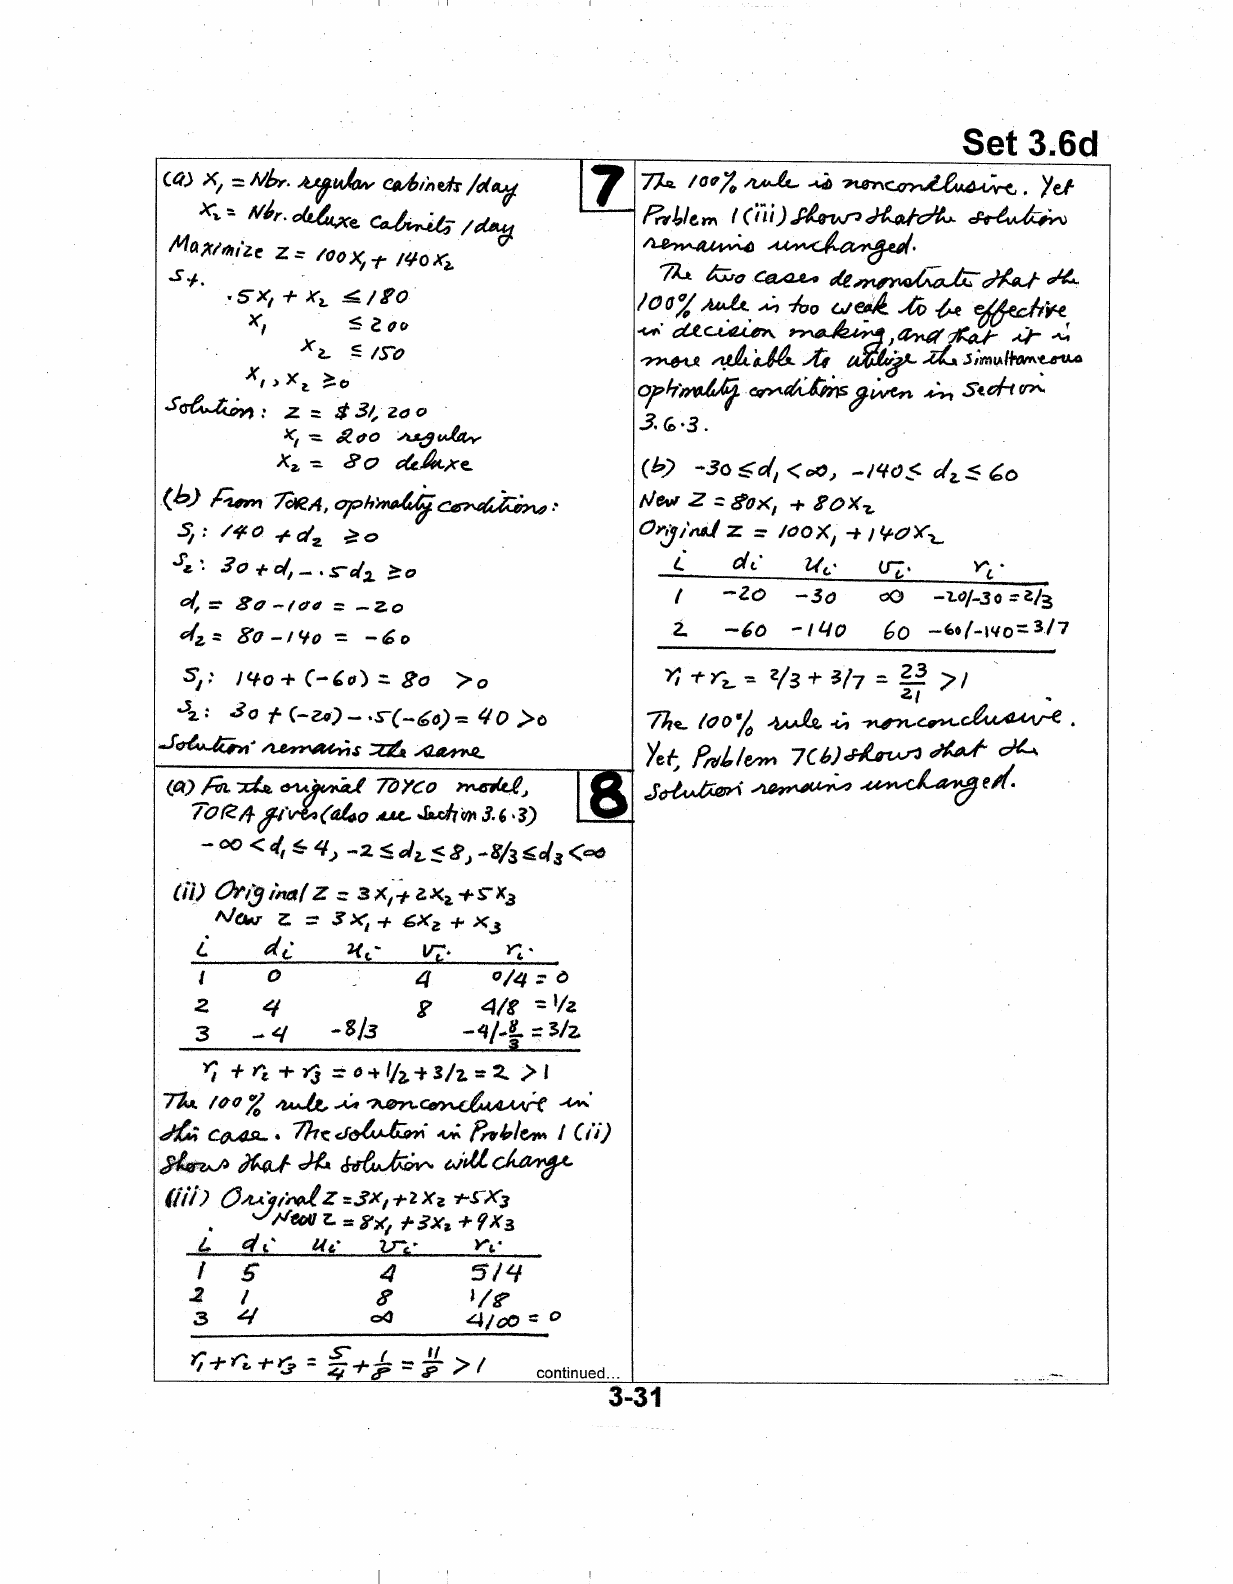 Set 3.6d
(a) X₁ = Nbr. regular cabinets /day
X₂ = Nbr. deluxe cabinets /day
Maximize Z = 100X₁ + 140X₂
S.t.
.5X₁ + X₂ ≤ 180
X₁ ≤ 200
X₂ ≤ 150
X₁, X₂ ≥ 0
Solution: Z = $31,200
X₁ = 200 regular
X₂ = 80 deluxe
(b) From TORA, optimality conditions:
S₁: 140 + d₂ ≥ 0
S₂: 30 + d₁ - .5d₂ ≥ 0
d₁ = 80 - 100 = -20
d₂ = 80 - 140 = -60
S₁: 140 + (-60) = 80 > 0
S₂: 30 + (-20) - .5(-60) = 40 > 0
Solution remains the same
7
(a) For the original TOYCO model,
TORA gives (also see Section 3.6.3)
-∞ < d₁ ≤ 4, -2 ≤ d₂ ≤ 8, -8/3 ≤ d₃ < ∞
8
(ii) Original Z = 3X₁ + 2X₂ + 5X₃
New Z = 3X₁ + 6X₂ + X₃
i dᵢ uᵢ vᵢ rᵢ
1 0 4 0/4 = 0
2 4 8 4/8 = 1/2
3 -4 -8/3 -4/-8/3 = 3/2
r₁ + r₂ + r₃ = 0 + 1/2 + 3/2 = 2 > 1
The 100% rule is nonconclusive in
this case. The solution in Problem 1(ii)
shows that the solution will change
(iii) Original Z = 3X₁ + 2X₂ + 5X₃
New Z = 8X₁ + 3X₂ + 9X₃
i dᵢ uᵢ vᵢ rᵢ
1 5 4 5/4
2 1 8 1/8
3 4 ∞ 4/∞ = 0
r₁ + r₂ + r₃ = 5/4 + 1/8 = 11/8 > 1
continued...
The 100% rule is nonconclusive. Yet
Problem 1(iii) shows that the solution
remains unchanged.
The two cases demonstrate that the
100% rule is too weak to be effective
in decision making, and that it is
more reliable to utilize the simultaneous
optimality conditions given in Section
3.6.3.
(b) -30 ≤ d₁ < ∞, -140 ≤ d₂ ≤ 60
New Z = 80X₁ + 80X₂
Original Z = 100X₁ + 140X₂
i dᵢ uᵢ vᵢ rᵢ
1 -20 -30 ∞ -20/-30 = 2/3
2 -60 -140 60 -60/-140 = 3/7
r₁ + r₂ = 2/3 + 3/7 = 23/21 > 1
The 100% rule is nonconclusive.
Yet, Problem 7(b) shows that the
solution remains unchanged.
3-31